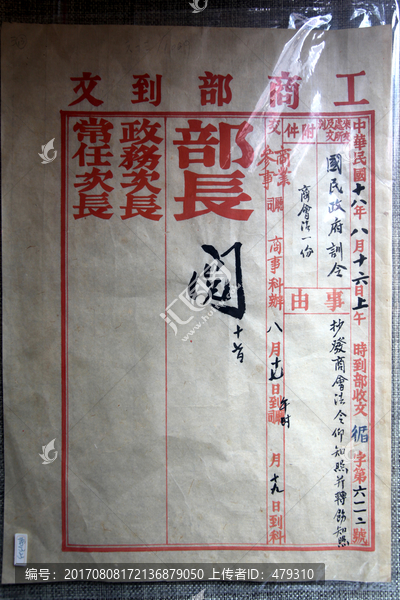 工商部到文
中華民國十八年八月十六日上午 時到部收文循字第六一二號
附件
國民政府訓令
商會法一份
事由
抄發商會法令仰知照并轉飭知照
交
商業
參事
商事科辦
八月十七日到
午 時
月十九日到科
部長
政務次長
常任次長
閱
十八
编号：20170808172136879050 上传者ID：479310